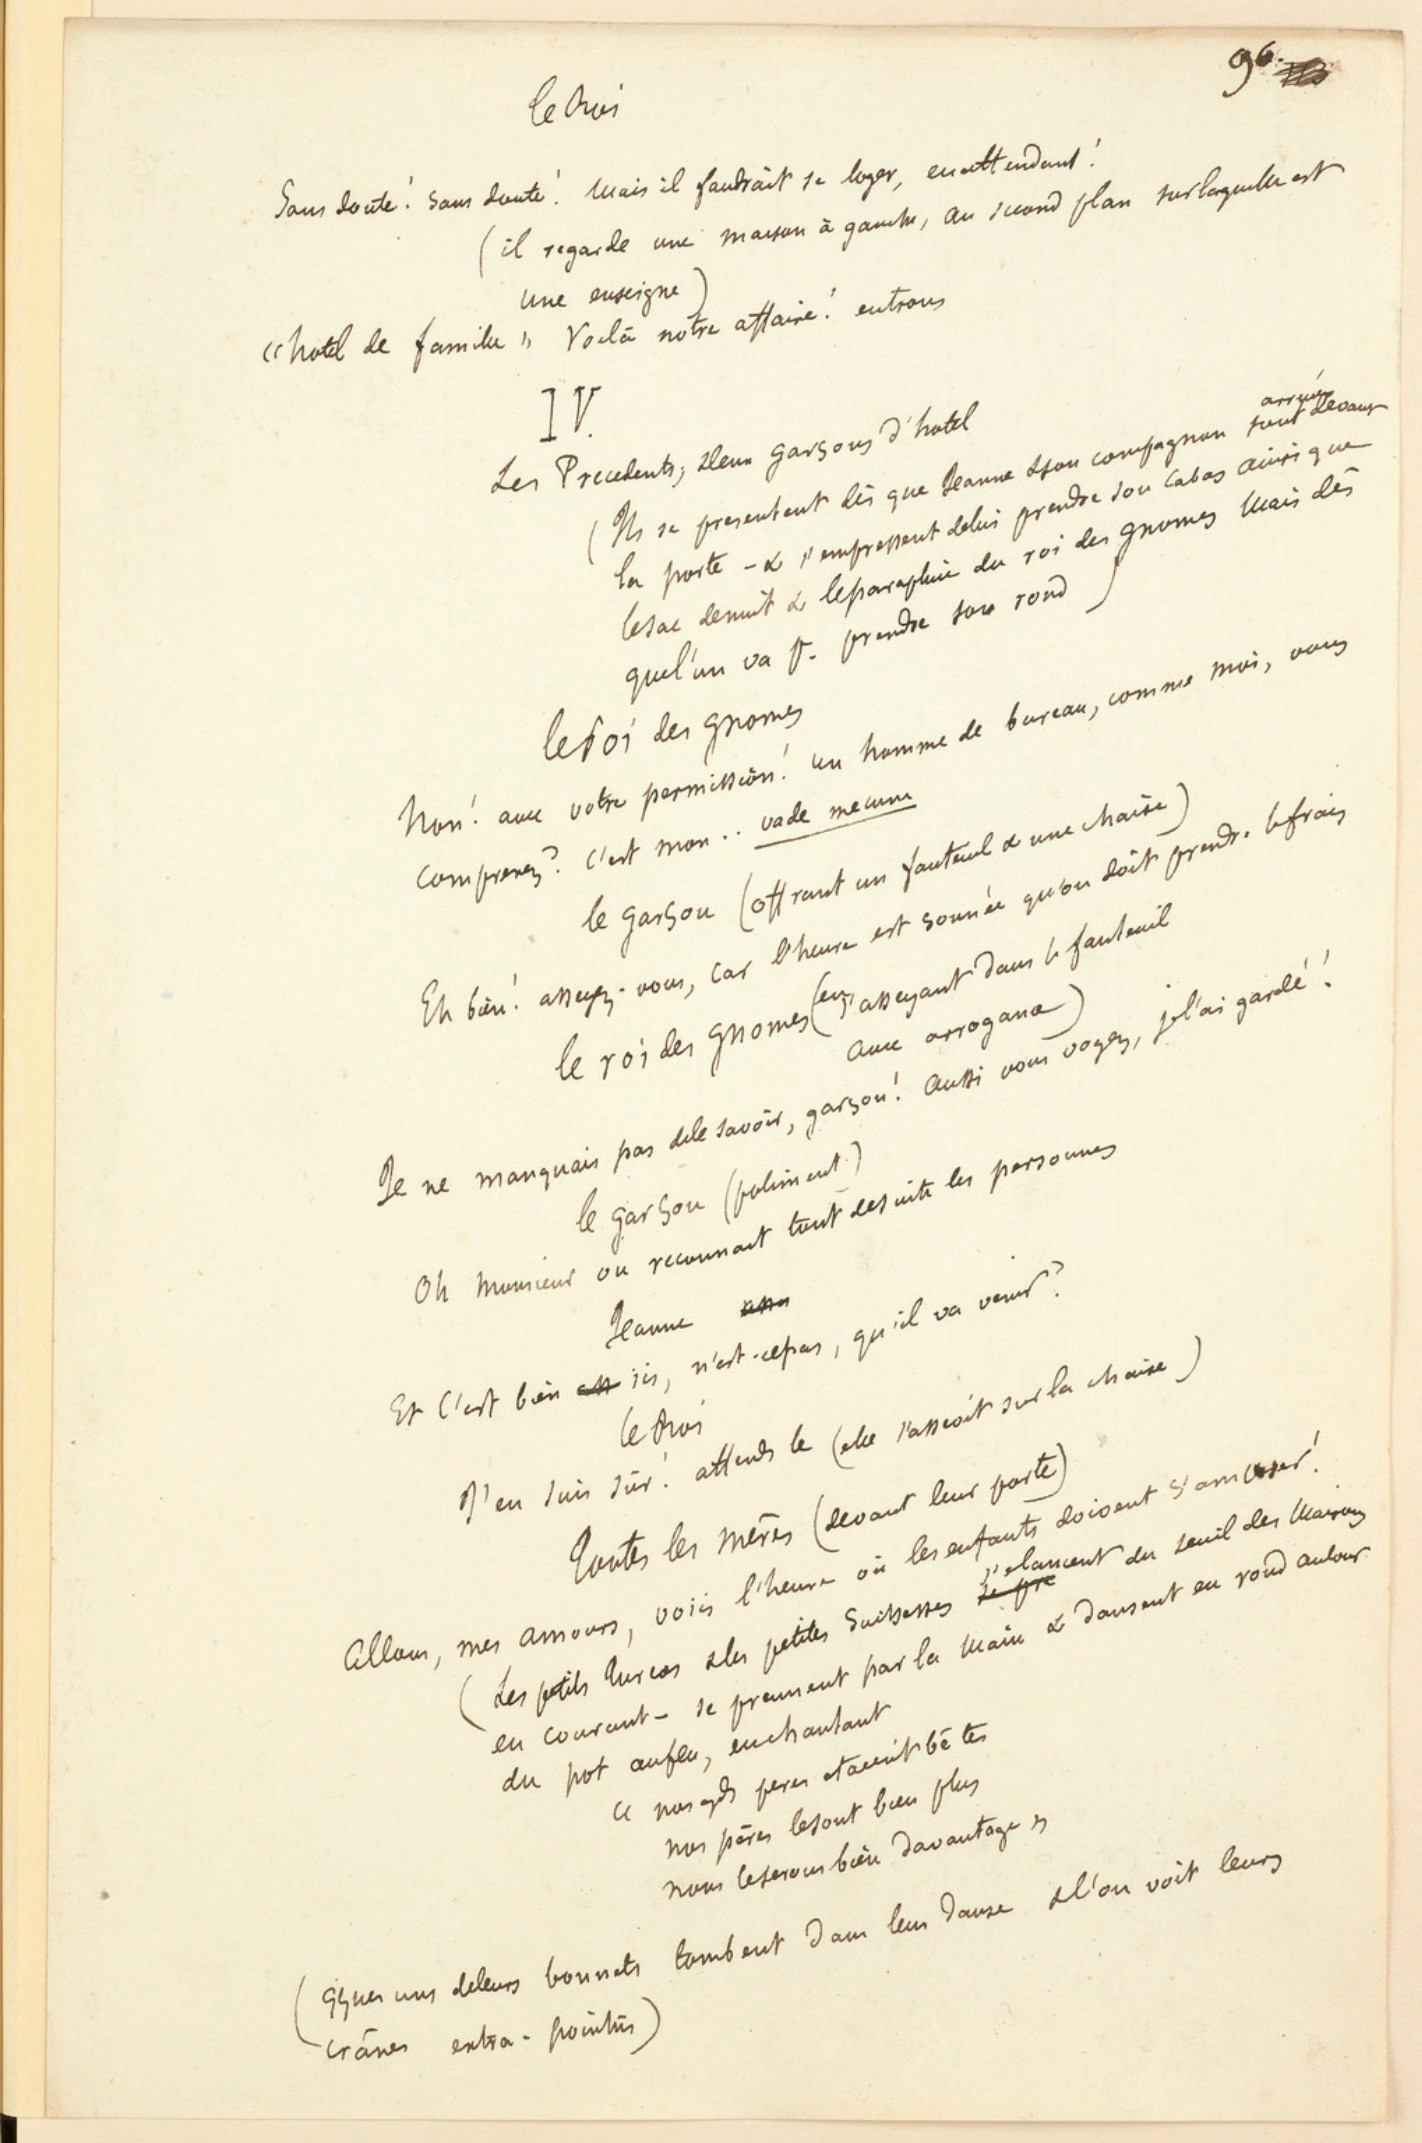 96.
le Roi
Sans doute! sans doute! mais il faudrait se loger, en attendant!
(il regarde une maison à gauche, au second plan sur laquelle est
une enseigne)
« hotel de famille » Voilà notre affaire! entrons
IV.
Les Precedents, deux garçons d'hotel
arrivés
(Ils se presentent dès que Jeanne & son compagnon sont devant
la porte - & s'empressent de lui prendre son cabas ainsi que
le sac de nuit & le parapluie du roi des gnomes mais dès
que l'un va pr. prendre son rond)
le roi des gnomes
Non! avec votre permission! un homme de bureau, comme moi, vous
comprenez? c'est mon .. vade mecum
le garçon (offrant un fauteuil & une chaise)
Eh bien! asseyez-vous, car l'heure est sonnée qu'on doit prendre le frais
le roi des gnomes (en s'asseyant dans le fauteuil
avec arrogance)
Je ne manquais pas de le savoir, garçon! aussi vous voyez, je l'ai gardé!
le garçon (poliment)
Oh monsieur on reconnait tout de suite les personnes
Jeanne
Et c'est bien ici, n'est-ce pas, qu'il va venir?
le Roi
J'en suis sûr! attends le (elle s'asseoit sur la chaise)
Toutes les mères (devant leur porte)
Allons, mes amours, voici l'heure où les enfants doivent s'amuser!
(Les petits Turcos & les petites Suissesses se pre s'elancent du seuil des maisons
en courant - se prennent par la main & dansent en rond autour
du pot au feu, en chantant
« nos gds peres etaient bêtes
nos pères le sont bien plus
nous le serons bien davantage »
(qques uns de leurs bonnets tombent dans leur danse & l'on voit leurs
crânes extra-pointus)